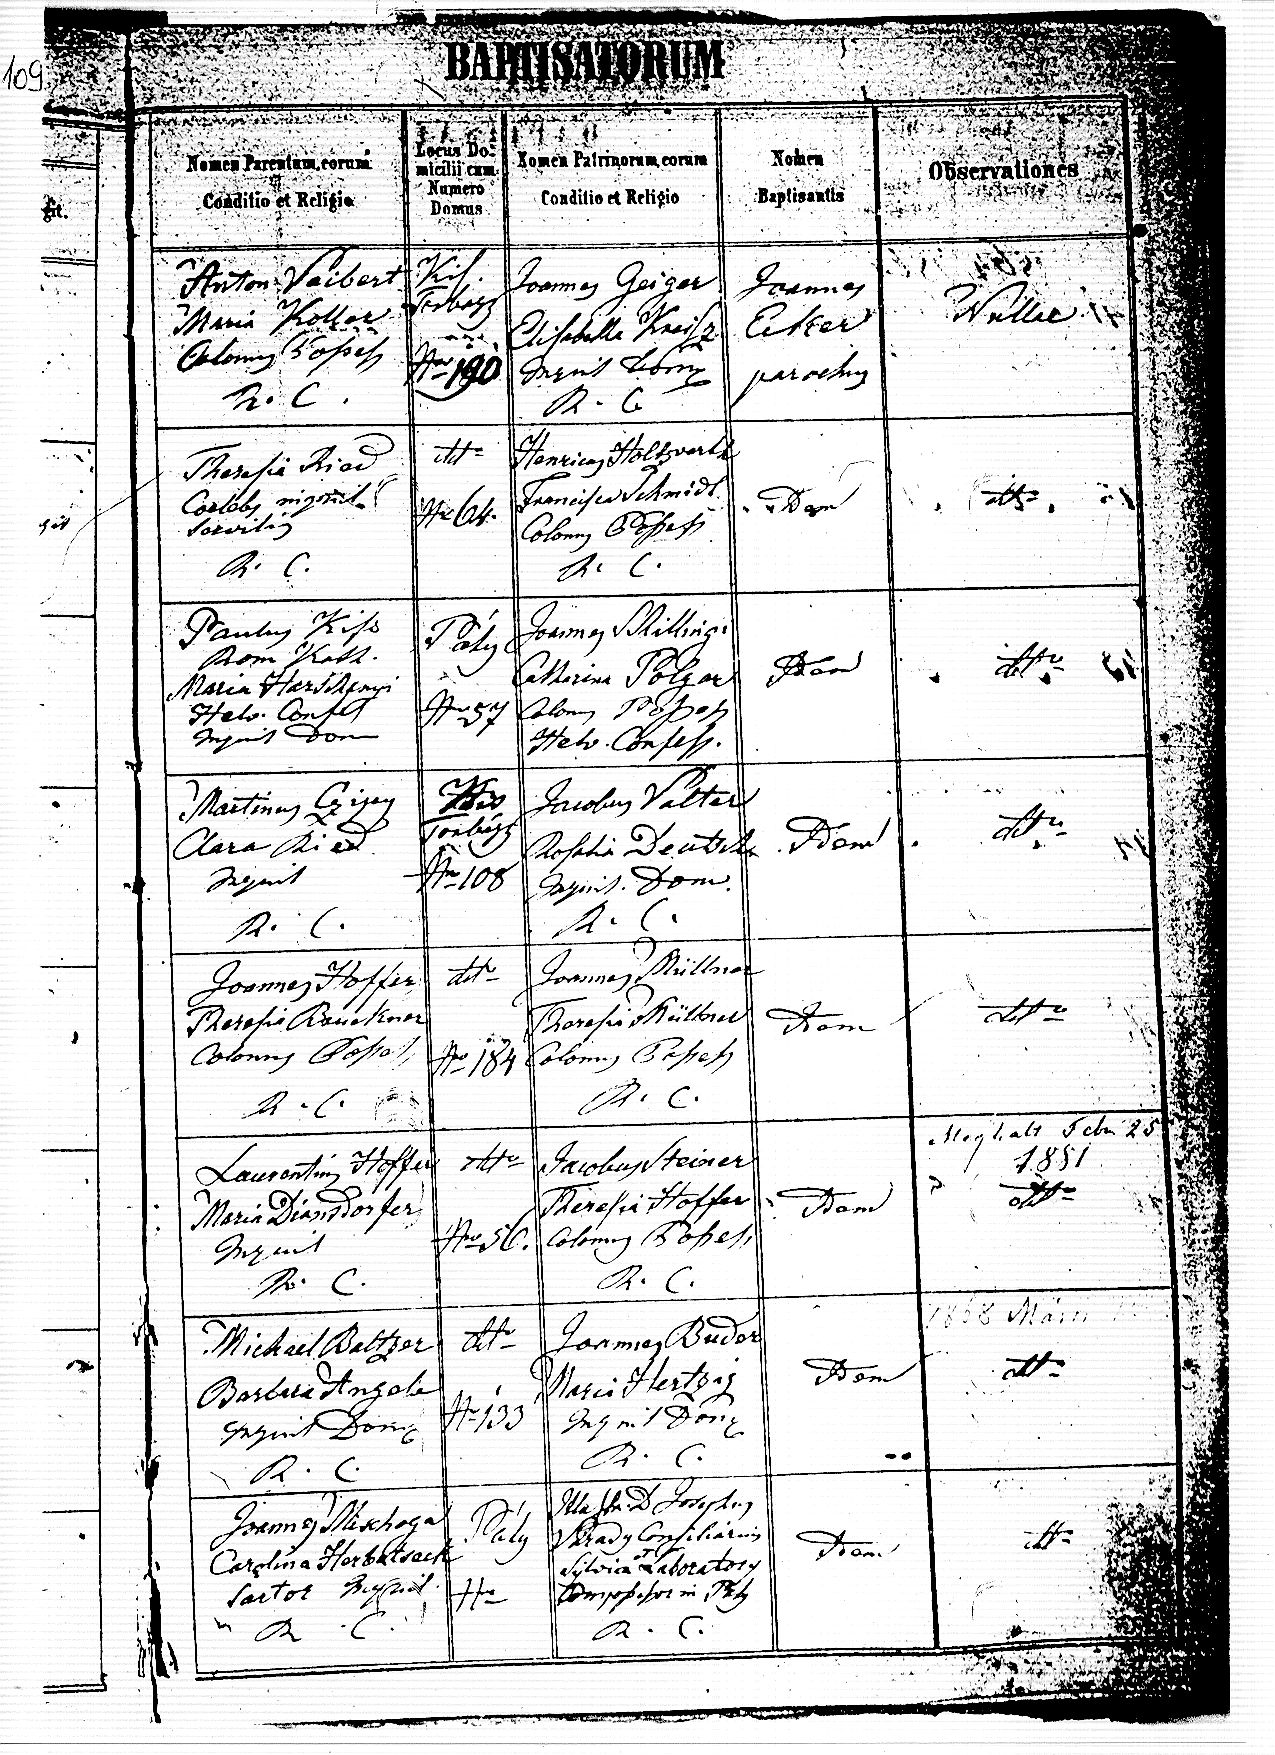 109
BAPTISATORUM
Nomen Parentum, eorum
et
Conditio et Religio
Locus Do-
micilii cum
Numero
Domus
Nomen Patrinorum, eorum
Conditio et Religio
Nomen
Baptisantis
Observationes
Anton Vaibert
Maria Koller
Colonus Possess
R. C.
Kis
Torbágy
Nro 190
Joannes Geiger
Elisabetha Kreisz
Inquil Dom
R. C.
Joannes
Ecker
parochus
Nullae
Theresia Ried
Coelebs
Servilis
R. C.
dtto
Nro 64.
Henricus Holtzwarth
Francisca Schmidt
Colonus Possess
R. C.
Idem
dtto
Paulus Kiss
Rom Kath.
Maria Harschanyi
Helv. Confes
Inquil Dom
Páty
Nro 57
Joannes Schilling
Catharina Polgar
Colonus Possess
Helv. Confess.
Idem
dtto
Martinus Czigey
Clara Ried
Inquil
R. C.
Kis
Torbágy
Nro 108
Jacobus Valter
Rosalia Deutsch
Inquil. Dom.
R. C.
Idem
dtto
Joannes Hoffer
Theresia Bruckner
Colonus Possess
R. C.
dtto
Nro 184
Joannes Müllner
Theresia Müllner
Colonus Possess
R. C.
Idem
dtto
Laurentius Hoffer
Maria Diansdorfer
Inquil
R. C.
dtto
Nro 56.
Jacobus Steiner
Theresia Hoffer
Colonus Possess
R. C.
Idem
Meghalt Febr 25
1851
dtto
Michael Baltzer
Barbara Angele
Inquil Dom
R. C.
dtto
Nro 133
Joannes Buder
Maria Hertzig
Inquil Dom
R. C.
Idem
1868
dtto
Joannes
Carolina Herbatschek
Sartor Inquil.
R. C.
Páty
Nro
D Josephus
Várady Consiliarius
Compossessor in Páty
R. C.
Idem
dtto